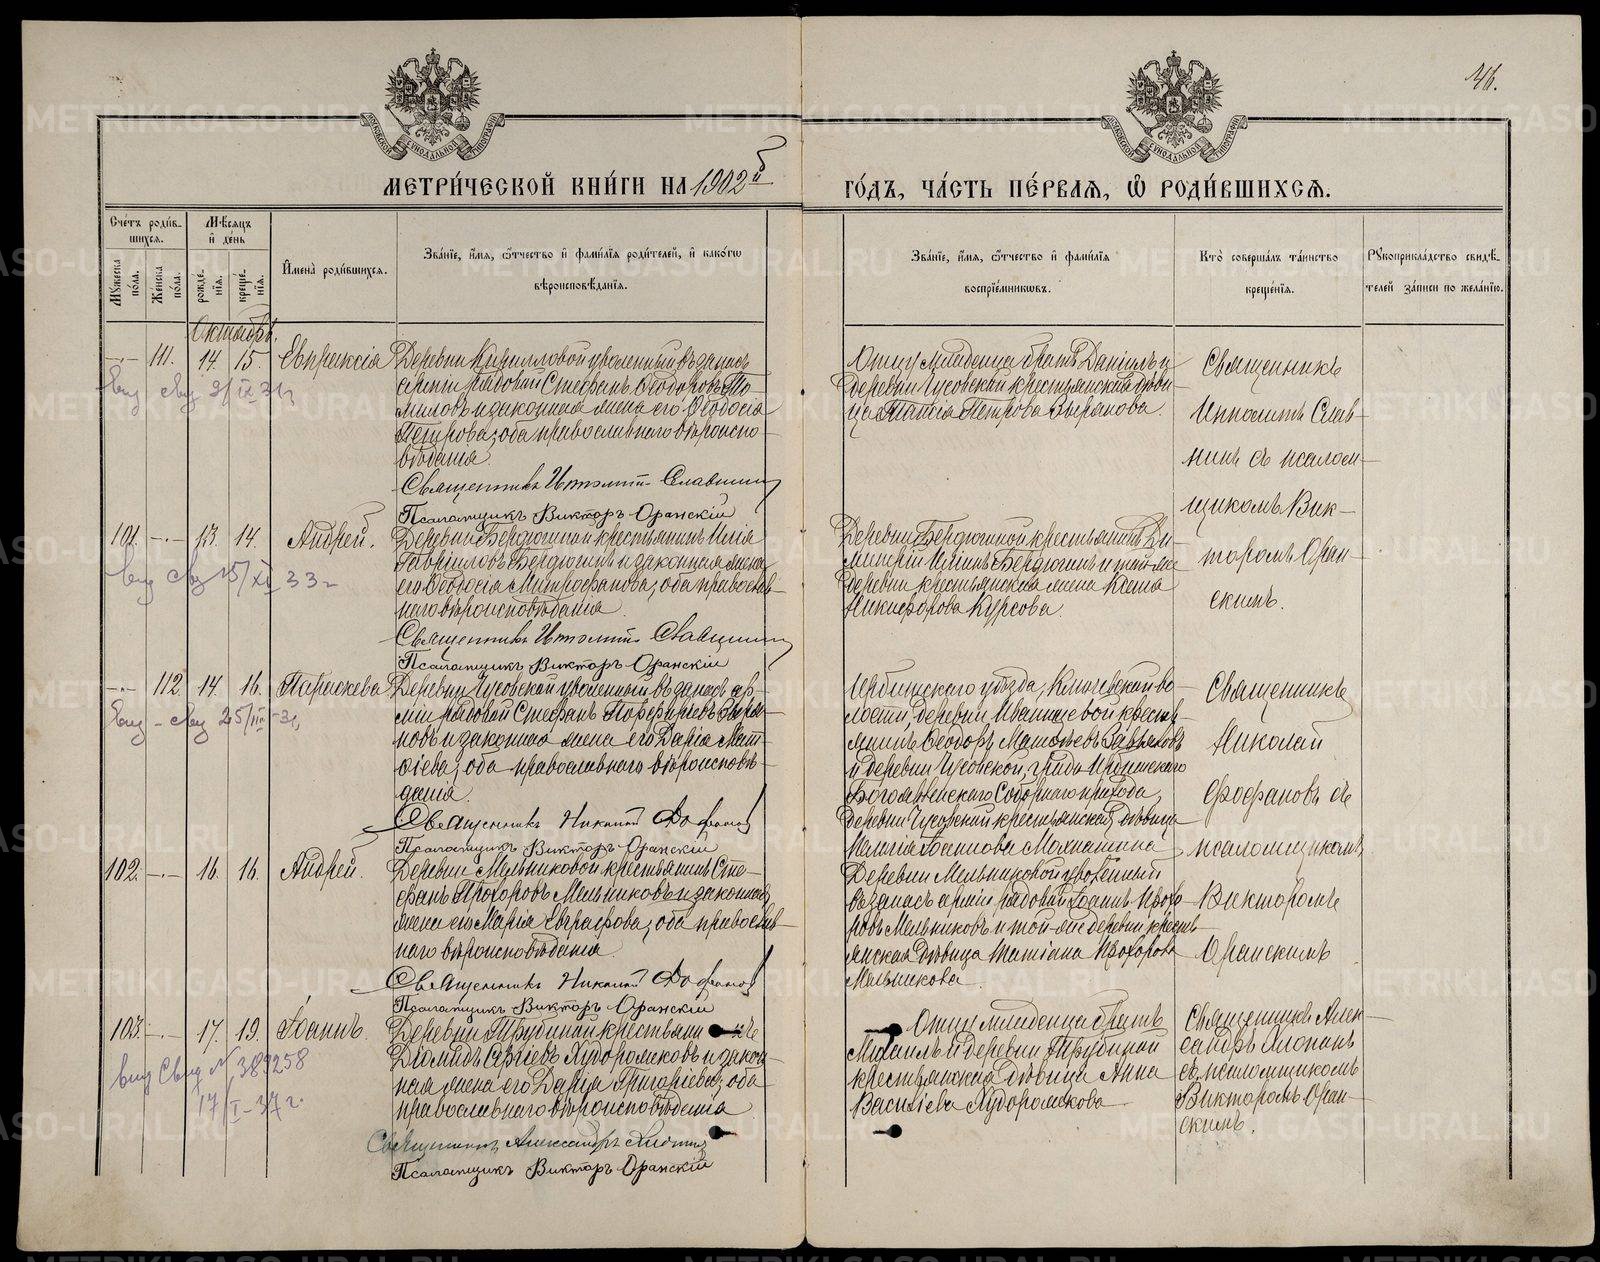 46.
МЕТРИ́ЧЕСКОЙ КНИ́ГИ НА 1902й
ГО́ДЪ, ЧА́СТЬ ПЕ́РВАЯ, Ѽ РОДИ́ВШИХСЯ.
Сче́тъ роди́в-
шихся.
Мѣсяцъ
и́ де́нь
И҆мена̀ роди́вшихся.
Зва́нїе, и҆́мя, ѻ҆́тчество и҆ фами́лїя роди́телей, и҆ како́гѡ
вѣроисповѣ́данїя.
Зва́нїе, и҆́мя, ѻ҆́тчество и҆ фами́лїя
воспрїе́мникѡвъ.
Кто̀ соверша́лъ та́инство
креще́нїя.
Рꙋкоприкла́дство свидѣ́-
телей за́писи по жела́нїю.
Мꙋ́жеска
по́ла.
Же́нска
по́ла.
рожде́-
нїя.
креще́-
нїя.
Октябрь.
—·— 111. 14. 15. Евпраксія
Деревни Кирилловой уволенный въ запасъ
арміи рядовой Стефанъ Ѳеодоровъ То-
миловъ и законная жена его Ѳеодосія
Петрова; оба православнаго вѣроиспо-
вѣданія.
Священникъ Ипполитъ Славнинъ
Псаломщикъ Викторъ Оранскій
Отцу младенца братъ Даніилъ и
деревни Чусовской крестьянская дѣви-
ца Таисія Петрова Зырянова.
Священникъ
Ипполитъ Слав-
нинъ съ псалом-
щикомъ Вик-
торомъ Оран-
скимъ.
101. —·— 13. 14. Андрей.
Деревни Бердюгиной крестьянинъ Илія
Гавріиловъ Бердюгинъ и законная жена
его Ѳеодосія Митрофанова; оба православ-
наго вѣроисповѣданія.
Священникъ Ипполитъ Славнинъ
Псаломщикъ Викторъ Оранскій
Деревни Бердюгиной крестьянинъ Ди-
митрій Иліинъ Бердюгинъ и той-же
деревни крестьянская жена Ксенія
Никифорова Курсова.
15/XI 33 г
—·— 112. 14. 16. Параскева
Деревни Чусовской уволенный въ запасъ ар-
міи рядовой Стефанъ Порфирьевъ Зыря-
новъ и законная жена его Дарія Мат-
ѳіева; оба православнаго вѣроисповѣ-
данія.
Священникъ Николай Фофановъ
Псаломщикъ Викторъ Оранскій
Ирбитскаго уѣзда, Ключевской во-
лости, деревни Иванищевой крестья-
нинъ Ѳеодоръ Матѳѣевъ Завьяловъ
и деревни Чусовской, града Ирбитскаго
Богоявленскаго Соборнаго прихода,
деревни Чусовской крестьянская дѣвица
Іоаннова
Священникъ
Николай
Фофановъ съ
псаломщикомъ
Викторомъ
Оранскимъ
102. —·— 16. 16. Андрей.
Деревни Мельниковой крестьянинъ Сте-
фанъ Прохоровъ Мельниковъ и законная
жена его Марія Евграфова; оба православ-
наго вѣроисповѣданія.
Священникъ Николай Фофановъ
Псаломщикъ Викторъ Оранскій
Деревни Мельниковой уволенный
въ запасъ арміи рядовой Іоаннъ Прохо-
ровъ Мельниковъ и той-же деревни крестья-
янская дѣвица Татіана Прохорова
Мельникова.
103. —·— 17. 19. Іоаннъ.
Деревни Трубиной крестьянинъ
Діомидъ Сергіевъ Худорожковъ и закон-
ная жена его Дарія Григоріева; оба
православнаго вѣроисповѣданія
Священникъ Александръ Хлопинъ
Псаломщикъ Викторъ Оранскій
Отцу младенца братъ
Михаилъ и деревни Трубиной
крестьянская дѣвица Анна
Василіева Худорожкова
Священникъ Алек-
сандръ Хлопинъ
съ псаломщикомъ
Викторомъ Оран-
скимъ.
№ 389258
17/I-37 г.